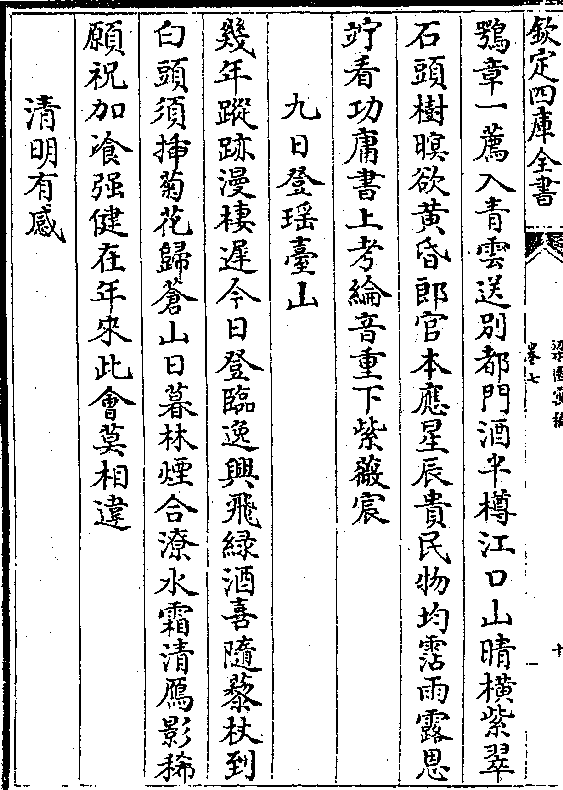 欽定四庫全書
卷七
十
鶚章一薦入青雲送別都門酒半樽江口山晴橫紫翠
石頭樹暝欲黃昏郎官本應星辰貴民物均霑雨露恩
竚看功庸書上考綸音重下紫薇宸
九日登瑶臺山
幾年蹤跡漫棲遲今日登臨逸興飛緑酒喜隨藜杖到
白頭須揷菊花歸蒼山日暮林煙合潦水霜清鴈影稀
願祝加飡强健在年來此會莫相違
清明有感